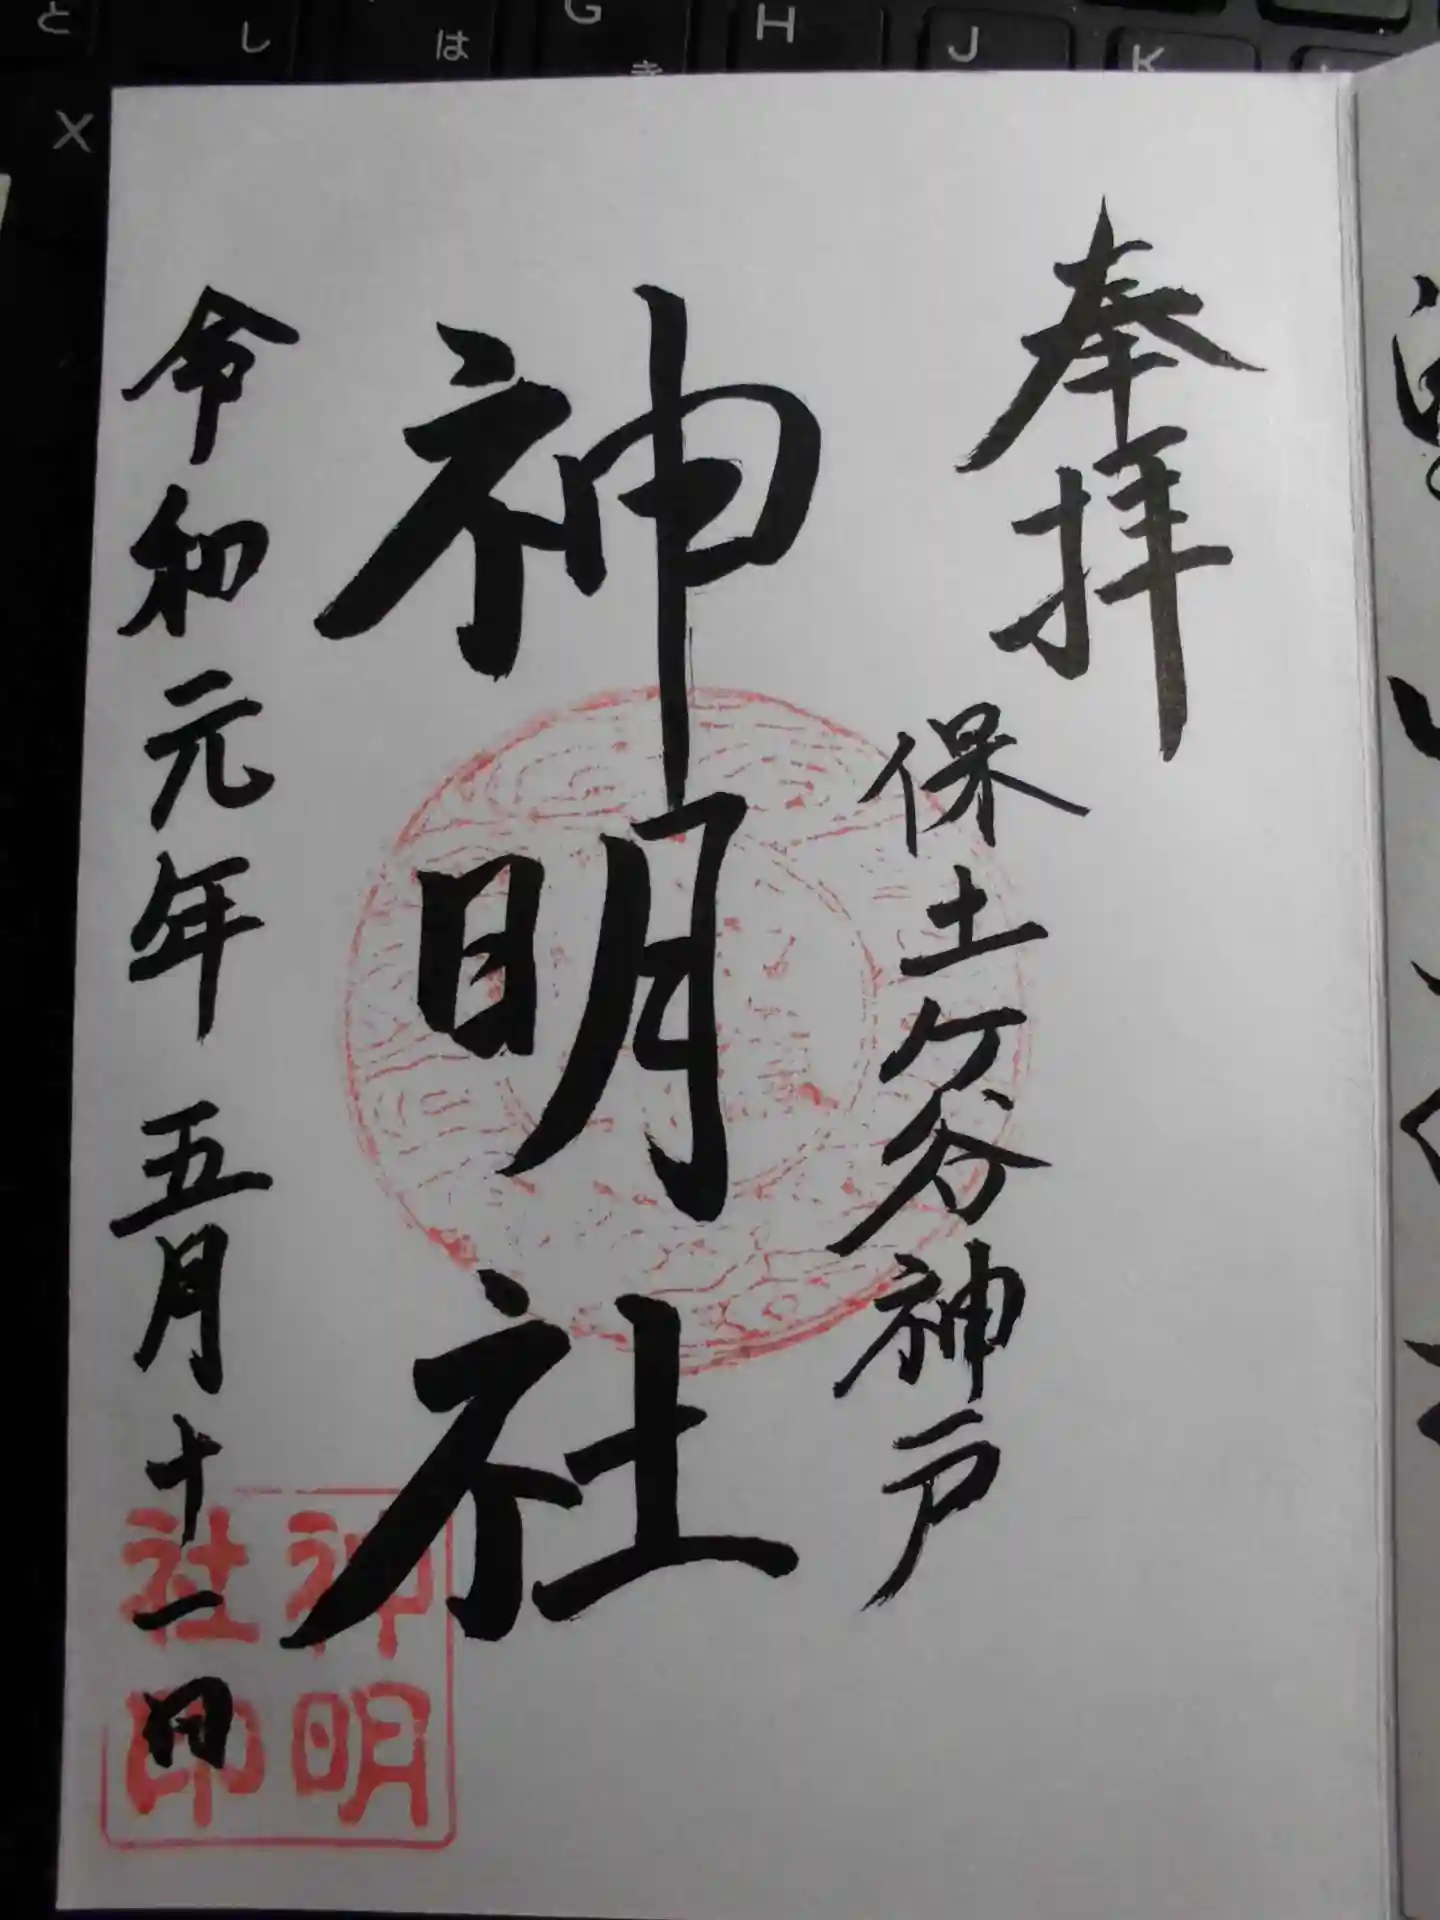 奉拝
保土ケ谷神戸
神明社
令和元年五月十一日
神明
社印
と
し
は
G
H
J
K
X